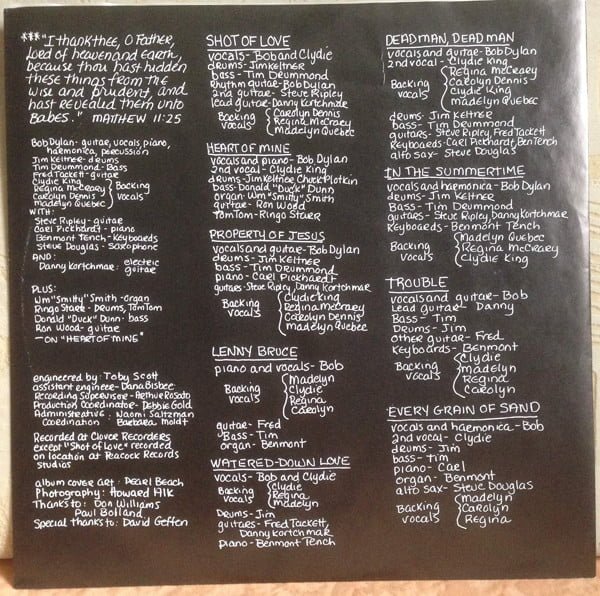 ***"I thank thee, O Father,
Lord of heaven and earth,
because thou hast hidden
these things from the
wise and prudent, and
hast revealed them unto
Babes." MATTHEW 11:25
Bob Dylan - guitar, vocals, piano,
harmonica, percussion
Jim Keltner - drums
Tim Drummond - Bass
Fred Tackett - guitar
Clydie King
Regina McCreary
Carolyn Dennis
Madelyn Quebec
Backing
vocals
WITH:
Steve Ripley - guitar
Carl Pickhardt - piano
Benmont Tench - Keyboards
Steve Douglas - saxophone
AND:
Danny Kortchmar: electric
guitar
PLUS:
Wm "Smitty" Smith - organ
Ringo Starr - Drums, TomTom
Donald "Duck" Dunn - bass
Ron Wood - guitar
- ON "HEART OF MINE"
engineered by: Toby Scott
assistant engineer - Dana Bisbee
Recording Supervisor - Arthur Rosato
Production Coordinator - Debbie Gold
Administrative Naomi Saltzman
Coordination Barbara Moldt
Recorded at Clover Recorders
except "Shot of Love" recorded
on location at Peacock Records
studios
album cover art: Pearl Beach
Photography: Howard Alk
Thanks to: Don Williams
Paul Bolland
Special thanks to: David Geffen
SHOT OF LOVE
vocals - Bob and Clydie
drums - Jim Keltner
bass - Tim Drummond
Rhythm guitar - Bob Dylan
2nd guitar - Steve Ripley
lead guitar - Danny Kortchmar
Backing
vocals
Carolyn Dennis
Regina McCreary
Madelyn Quebec
HEART OF MINE
vocals and piano - Bob Dylan
2nd vocal - Clydie King
drums - Jim Keltner, Chuck Plotkin
Bass - Donald "Duck" Dunn
organ - Wm "Smitty" Smith
guitar - Ron Wood
TomTom - Ringo Starr
PROPERTY OF JESUS
vocals and guitar - Bob Dylan
drums - Jim Keltner
bass - Tim Drummond
piano - Carl Pickhardt
guitars - Steve Ripley, Danny Kortchmar
Backing
vocals
Clydie King
Regina McCreary
Carolyn Dennis
Madelyn Quebec
LENNY BRUCE
piano and vocals - Bob
Backing
vocals
Madelyn
Clydie
Regina
Carolyn
guitar - Fred
Bass - Tim
organ - Benmont
WATERED-DOWN LOVE
vocals - Bob and Clydie
Backing
vocals
Clydie
Regina
Madelyn
Drums - Jim
guitars - Fred Tackett,
Danny Kortchmar
piano - Benmont Tench
DEAD MAN, DEAD MAN
vocals and guitar - Bob Dylan
2nd vocal - Clydie King
Backing
vocals
Regina McCreary
Carolyn Dennis
Clydie King
Madelyn Quebec
drums - Jim Keltner
bass - Tim Drummond
guitars - Steve Ripley, Fred Tackett
Keyboards - Carl Pickhardt, Ben Tench
alto sax - Steve Douglas
IN THE SUMMERTIME
vocals and harmonica - Bob Dylan
drums - Jim Keltner
Bass - Tim Drummond
guitars - Steve Ripley, Danny Kortchmar
Keyboards - Benmont Tench
Backing
vocals
Madelyn Quebec
Regina McCreary
Clydie King
TROUBLE
vocals and guitar - Bob
Lead guitar - Danny
Bass - Tim
Drums - Jim
other guitar - Fred
Keyboards - Benmont
Backing
vocals
Clydie
Madelyn
Regina
Carolyn
EVERY GRAIN OF SAND
vocals and harmonica - Bob
2nd vocal - Clydie
drums - Jim
bass - Tim
piano - Carl
organ - Benmont
alto sax - Steve Douglas
Backing
vocals
Madelyn
Carolyn
Regina